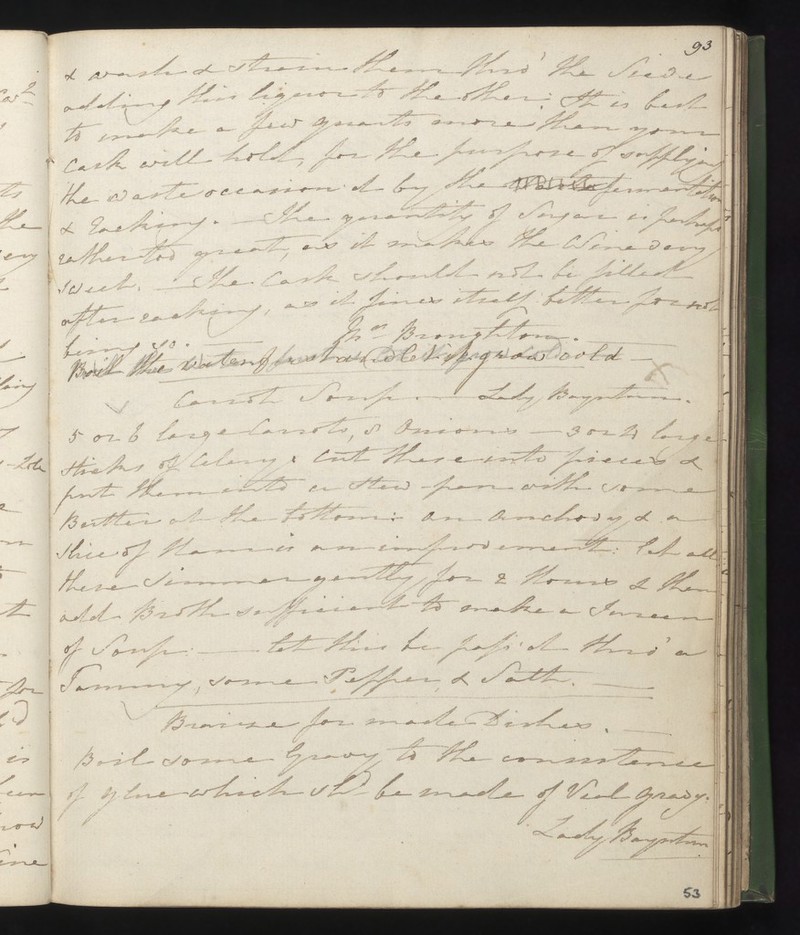 93
& wash & strain them thro' the Sieve
adding this liquor to the other: It is best
to make a few quarts more than your
Cask will hold, for the purpose of supplying
the waste occasion'd by the fermentation
& Racking. — The quantity of Sugar is perhaps
rather too great, as it makes the Wine very
sweet. — The Cask should not be filled
after racking, as it fines itself better for not
being so. — Jnº Broughton.
Boil the water first & let it grow cold
Carrot Soup. — Lady Boynton.
5 or 6 large Carrots, 8 Onions — 3 or 4 large
sticks of Celery: Cut these into pieces &
put them into a stew-pan with some
Butter at the bottom: an Anchovy & a
slice of Ham is an improvement: let all
these simmer gently for 2 Hours & then
add Broth sufficient to make a Tureen
of Soup. — let this be pass'd thro' a
Tammy, some Pepper & Salt. —
Braize for made Dishes. —
Boil some Gravy to the consistence
of glue which shd be made of Veal gravy.
Lady Boynton
53